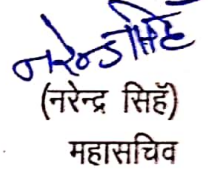 नरेन्द्र सिंह
(नरेन्द्र सिहँ)
महासचिव